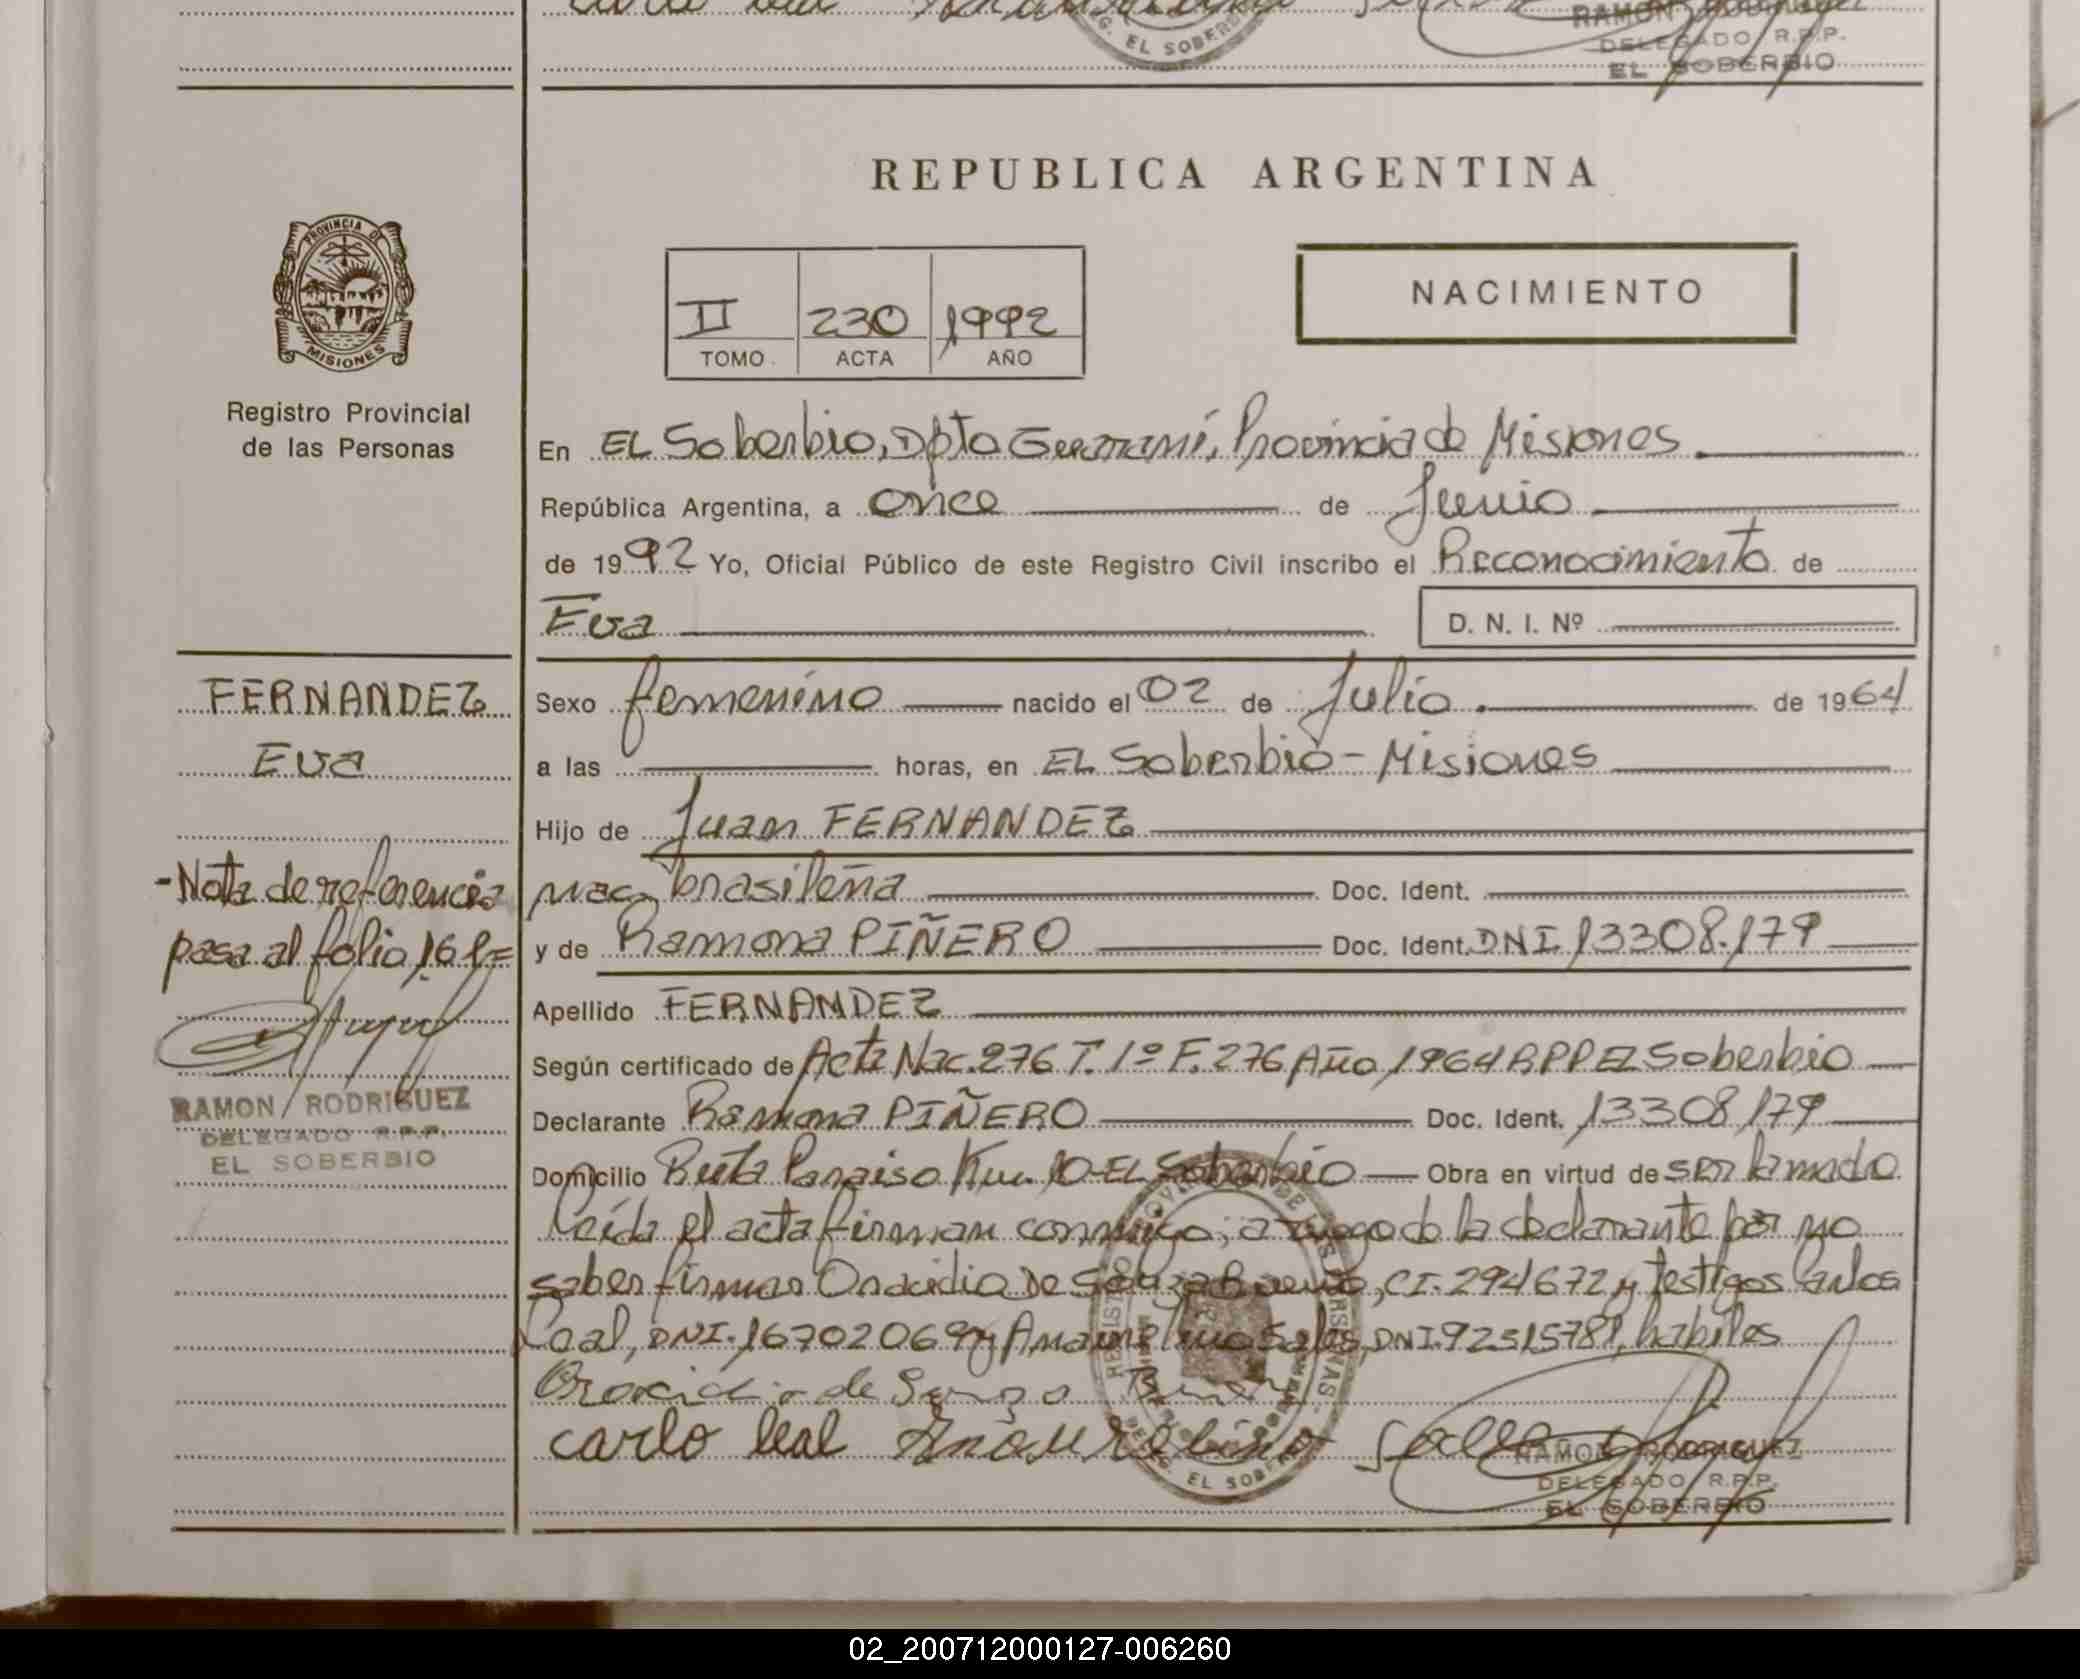 RAMON RODRIGUEZ
DELEGADO R.P.P.
EL SOBERBIO
G. EL SOBERB
REPUBLICA ARGENTINA
PROVINCIA DE
MISIONES
Registro Provincial
de las Personas
II 230 1992
TOMO. ACTA AÑO
NACIMIENTO
En EL Soberbio, Dpto Guaraní, Provincia de Misiones
República Argentina, a once de Junio
de 1992 Yo, Oficial Público de este Registro Civil inscribo el Reconocimiento de
Eva D. N. I. Nº
FERNANDEZ
Eva
Sexo femenino nacido el 02 de Julio de 1964
a las horas, en EL Soberbio - Misiones
Hijo de Juan FERNANDEZ
nac. brasileña Doc. Ident.
y de Ramona PIÑERO Doc. Ident. DNI 13308.179
-Nota de referencia
pasa al folio 161=
RAMON RODRIGUEZ
DELEGADO R.P.P.
EL SOBERBIO
Apellido FERNANDEZ
Según certificado de Acta Nac. 276 T. 1º F. 276 Año 1964 RPP EL Soberbio
Declarante Ramona PIÑERO Doc. Ident. 13308179
Domicilio Ruta Paraiso Km. 10-EL Soberbio Obra en virtud de ser llamado
leída el acta firman conmigo, a ruego de la declarante por no
saber firmar Oracidio De Souza Bueno, CI. 294672 y testigos Carlos
Leal, DNI. 16702069 y Sales, DNI. 92315781, habiles
Oracidio de Souza
carlo leal
RAMON RODRIGUEZ
DELEGADO R.P.P.
EL SOBERBIO
02_200712000127-006260